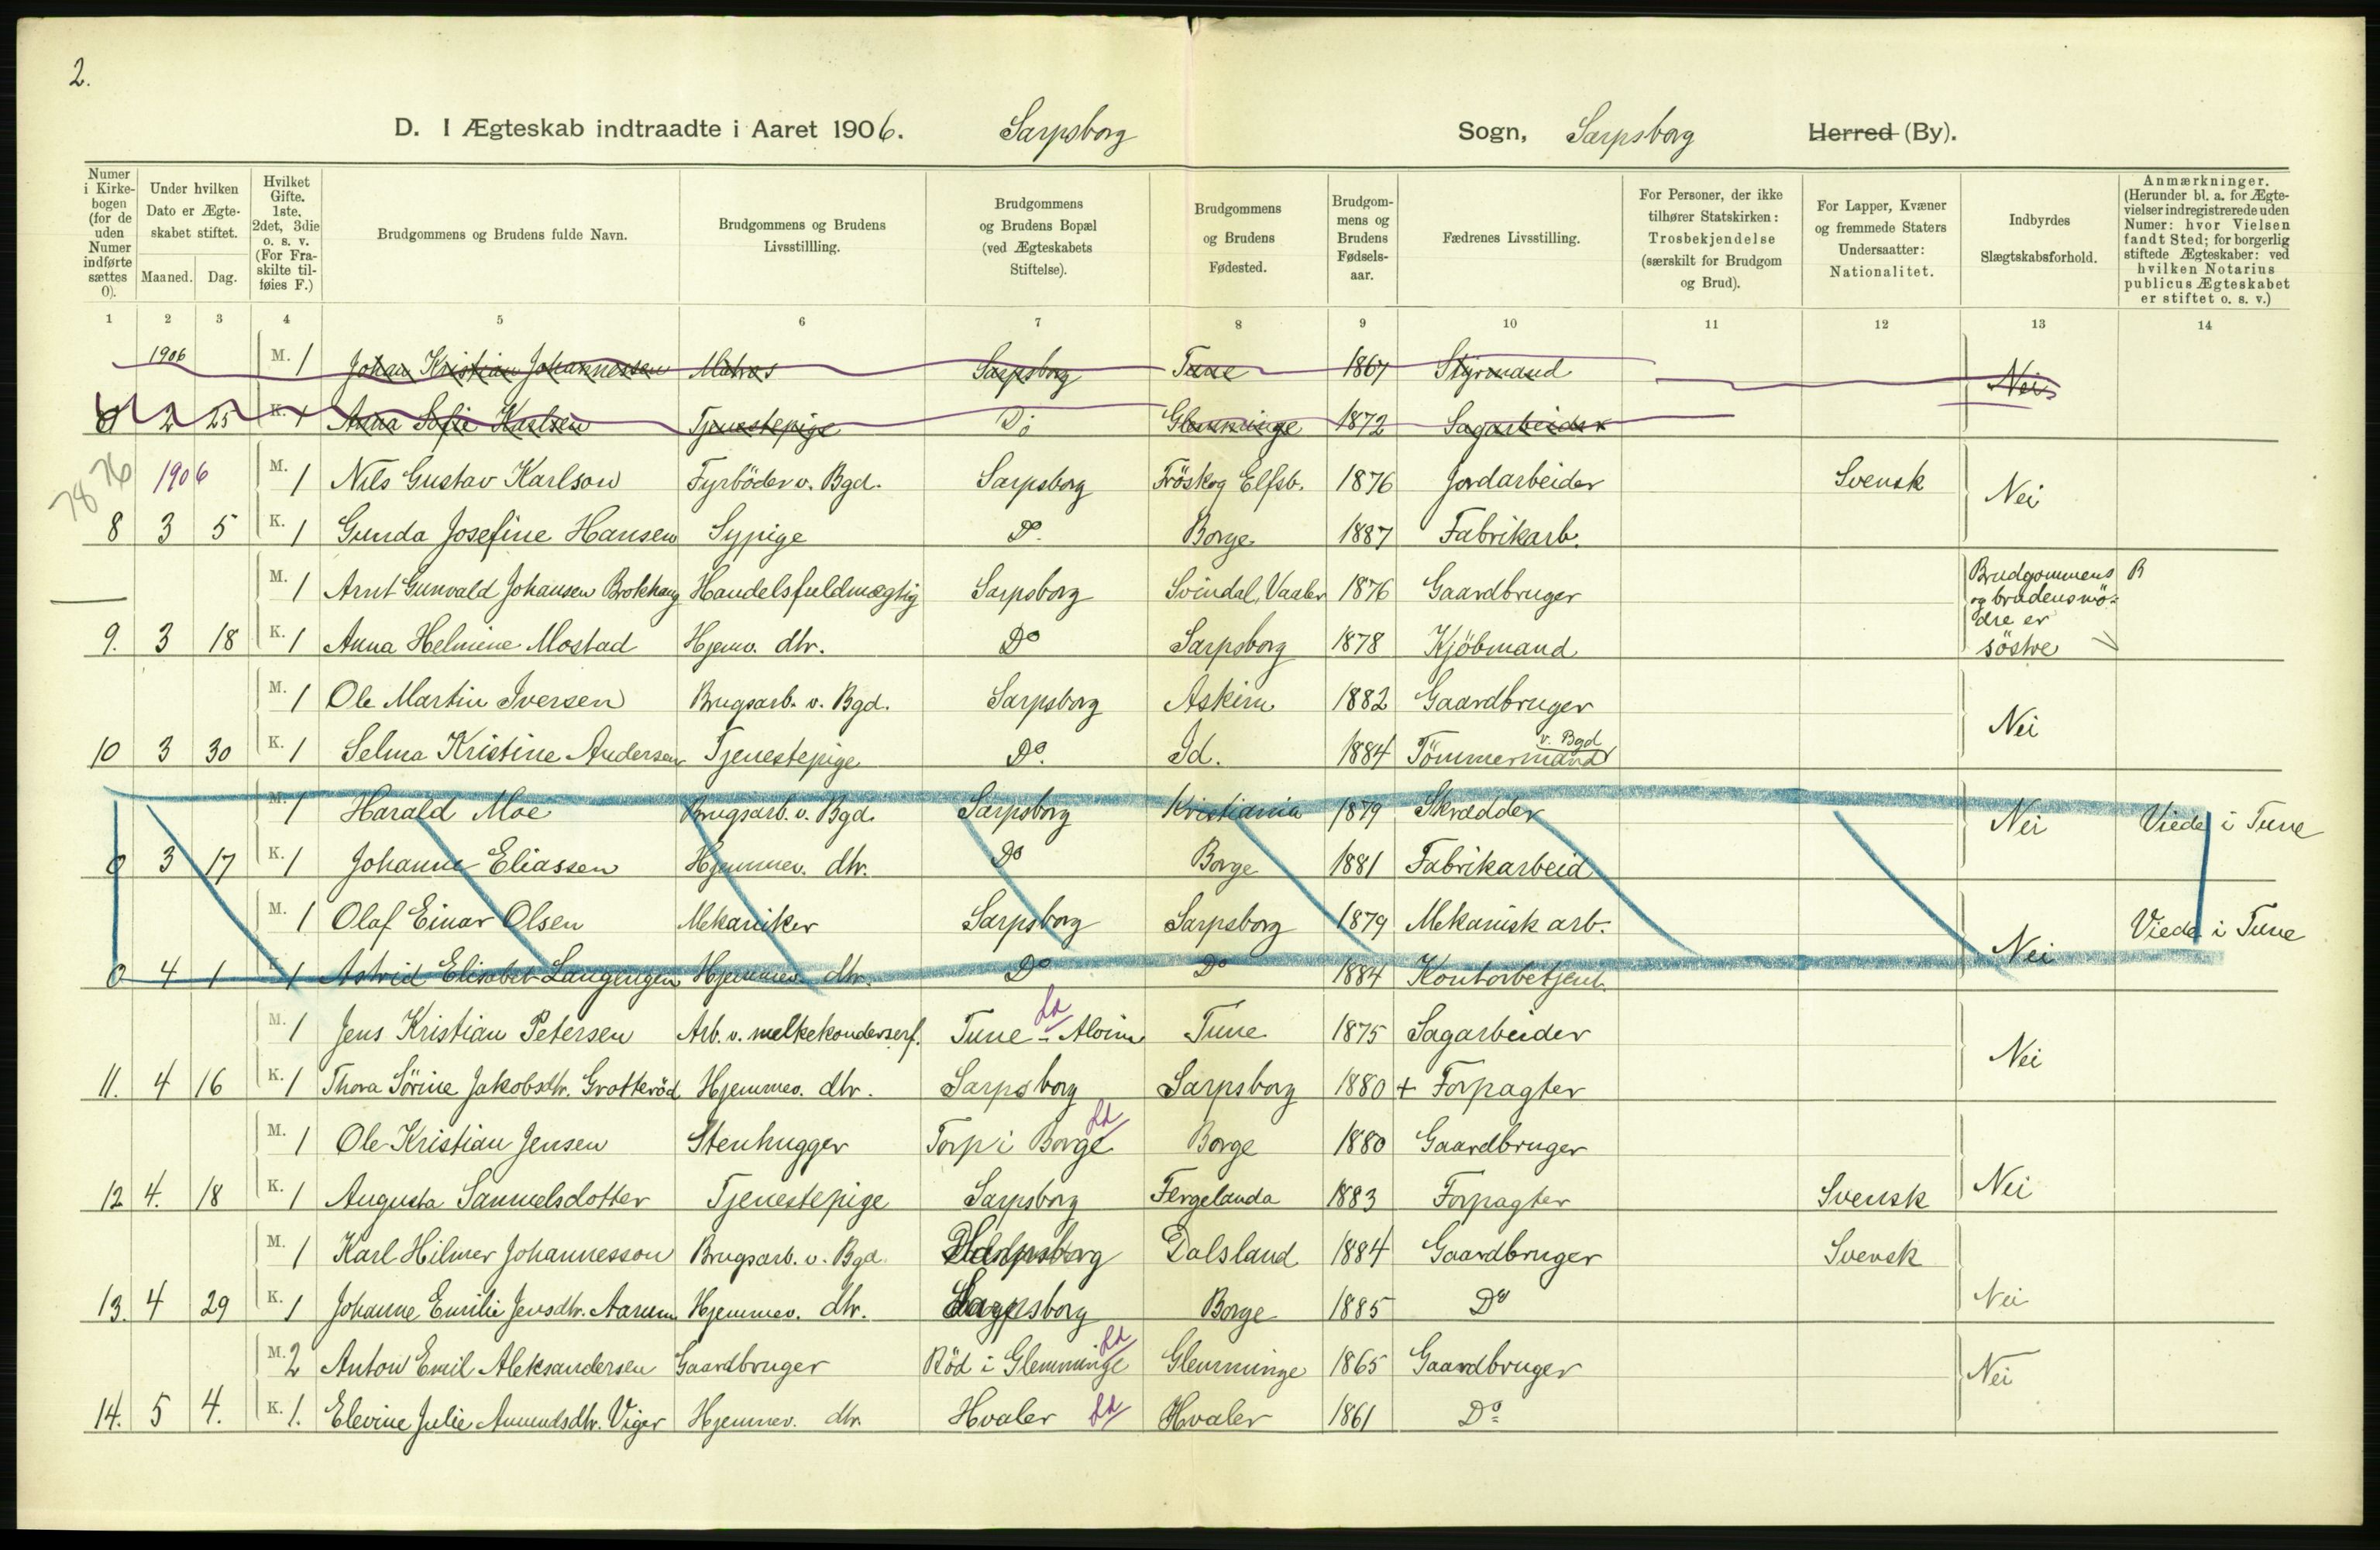 2.
D. I Ægteskab indtraadte i Aaret 1906. Sarpsborg Sogn, Sarpsborg Herred (By).
Numer i Kirkebogen (for de uden Numer indførte sættes 0).
Under hvilken Dato er Ægteskabet stiftet. Maaned. Dag.
Hvilket Gifte. 1ste, 2det, 3die o. s. v. (For Fraskilte tilføies F.)
Brudgommens og Brudens fulde Navn.
Brudgommens og Brudens Livsstillling.
Brudgommens og Brudens Bopæl (ved Ægteskabets Stiftelse).
Brudgommens og Brudens Fødested.
Brudgommens og Brudens Fødselsaar.
Fædrenes Livsstilling.
For Personer, der ikke tilhører Statskirken: Trosbekjendelse (særskilt for Brudgom og Brud).
For Lapper, Kvæner og fremmede Staters Undersaatter: Nationalitet.
Indbyrdes Slægtskabsforhold.
Anmærkninger. (Herunder bl. a. for Ægtevielser indregistrerede uden Numer: hvor Vielsen fandt Sted; for borgerlig stiftede Ægteskaber: ved hvilken Notarius publicus Ægteskabet er stiftet o. s. v.)
1 2 3 4 5 6 7 8 9 10 11 12 13 14
1906 M. 1 Johan Kristian Johannessen Matros Sarpsborg Tune 1867 Styrmand Nei
0 2 25 K. 1 Anna Sofie Karlsen Tjenestepige Do Glemminge 1872 Sagarbeider
78 76
1906 M. 1 Nils Gustav Karlson Fyrböder v. Bgd. Sarpsborg Fröskog Elfsb. 1876 Jordarbeider Svensk Nei
8 3 5 K. 1 Gunda Josefine Hansen Sypige Do. Borge 1887 Fabrikarb.
M. 1 Arnt Gunvald Johansen Brokhaug Handelsfuldmægtig Sarpsborg Svindal, Vaaler 1876 Gaardbruger Brudgommens og brudens mödre er söstre R
9. 3 18 K. 1 Anna Helmine Mostad Hjemv. dtr. Do Sarpsborg 1878 Kjöbmand
M. 1 Ole Martin Iversen Brugsarb. v. Bgd. Sarpsborg Askim 1882 Gaardbruger Nei
10 3 30 K. 1 Selma Kristine Andersen Tjenestepige Do. Id. 1884 Tömmermand v. Bgd
M. 1 Harald Moe Brugsarb. v. Bgd. Sarpsborg Kristiania 1879 Skrædder Nei Viede i Tune
0 3 17 K. 1 Johanne Eliassen Hjemmev. dtr. Do Borge 1881 Fabrikarbeid
M. 1 Olaf Einar Olsen Mekaniker Sarpsborg Sarpsborg 1879 Mekanisk arb. Nei Viede i Tune
0 4 1 K. 1 Astrid Elisabet Langengen Hjemmev. dtr. Do Do 1884 Kontorbetjent.
M. 1 Jens Kristian Petersen Arb. v. melkekondenserf. Tune - Alvim Ld Tune 1875 Sagarbeider Nei
11. 4 16 K. 1 Thora Sörine Jakobsdtr. Grotteröd Hjemmev. dtr. Sarpsborg Sarpsborg 1880 + Forpagter
M. 1 Ole Kristian Jensen Stenhugger Torp i Borge Ld Borge 1880 Gaardbruger Nei
12 4. 18 K. 1 Augusta Samuelsdotter Tjenestepige Sarpsborg Fergelanda 1883 Forpagter Svensk
M. 1 Karl Hilmer Johannesson Brugsarb. v. Bgd. Sarpsborg Dalsland 1884 Gaardbruger Svensk Nei
13. 4 29 K. 1 Johanne Emilie Jensdtr. Aarum Hjemmev. dtr. Sarpsborg Borge 1885 Do
M. 2 Anton Emil Aleksandersen Gaardbruger Röd i Glemminge Ld Glemminge 1865 Gaardbruger Nei
14. 5 4. K. 1. Elevine Julie Amundsdtr. Viger Hjemmev. dtr. Hvaler Ld Hvaler 1861 Do